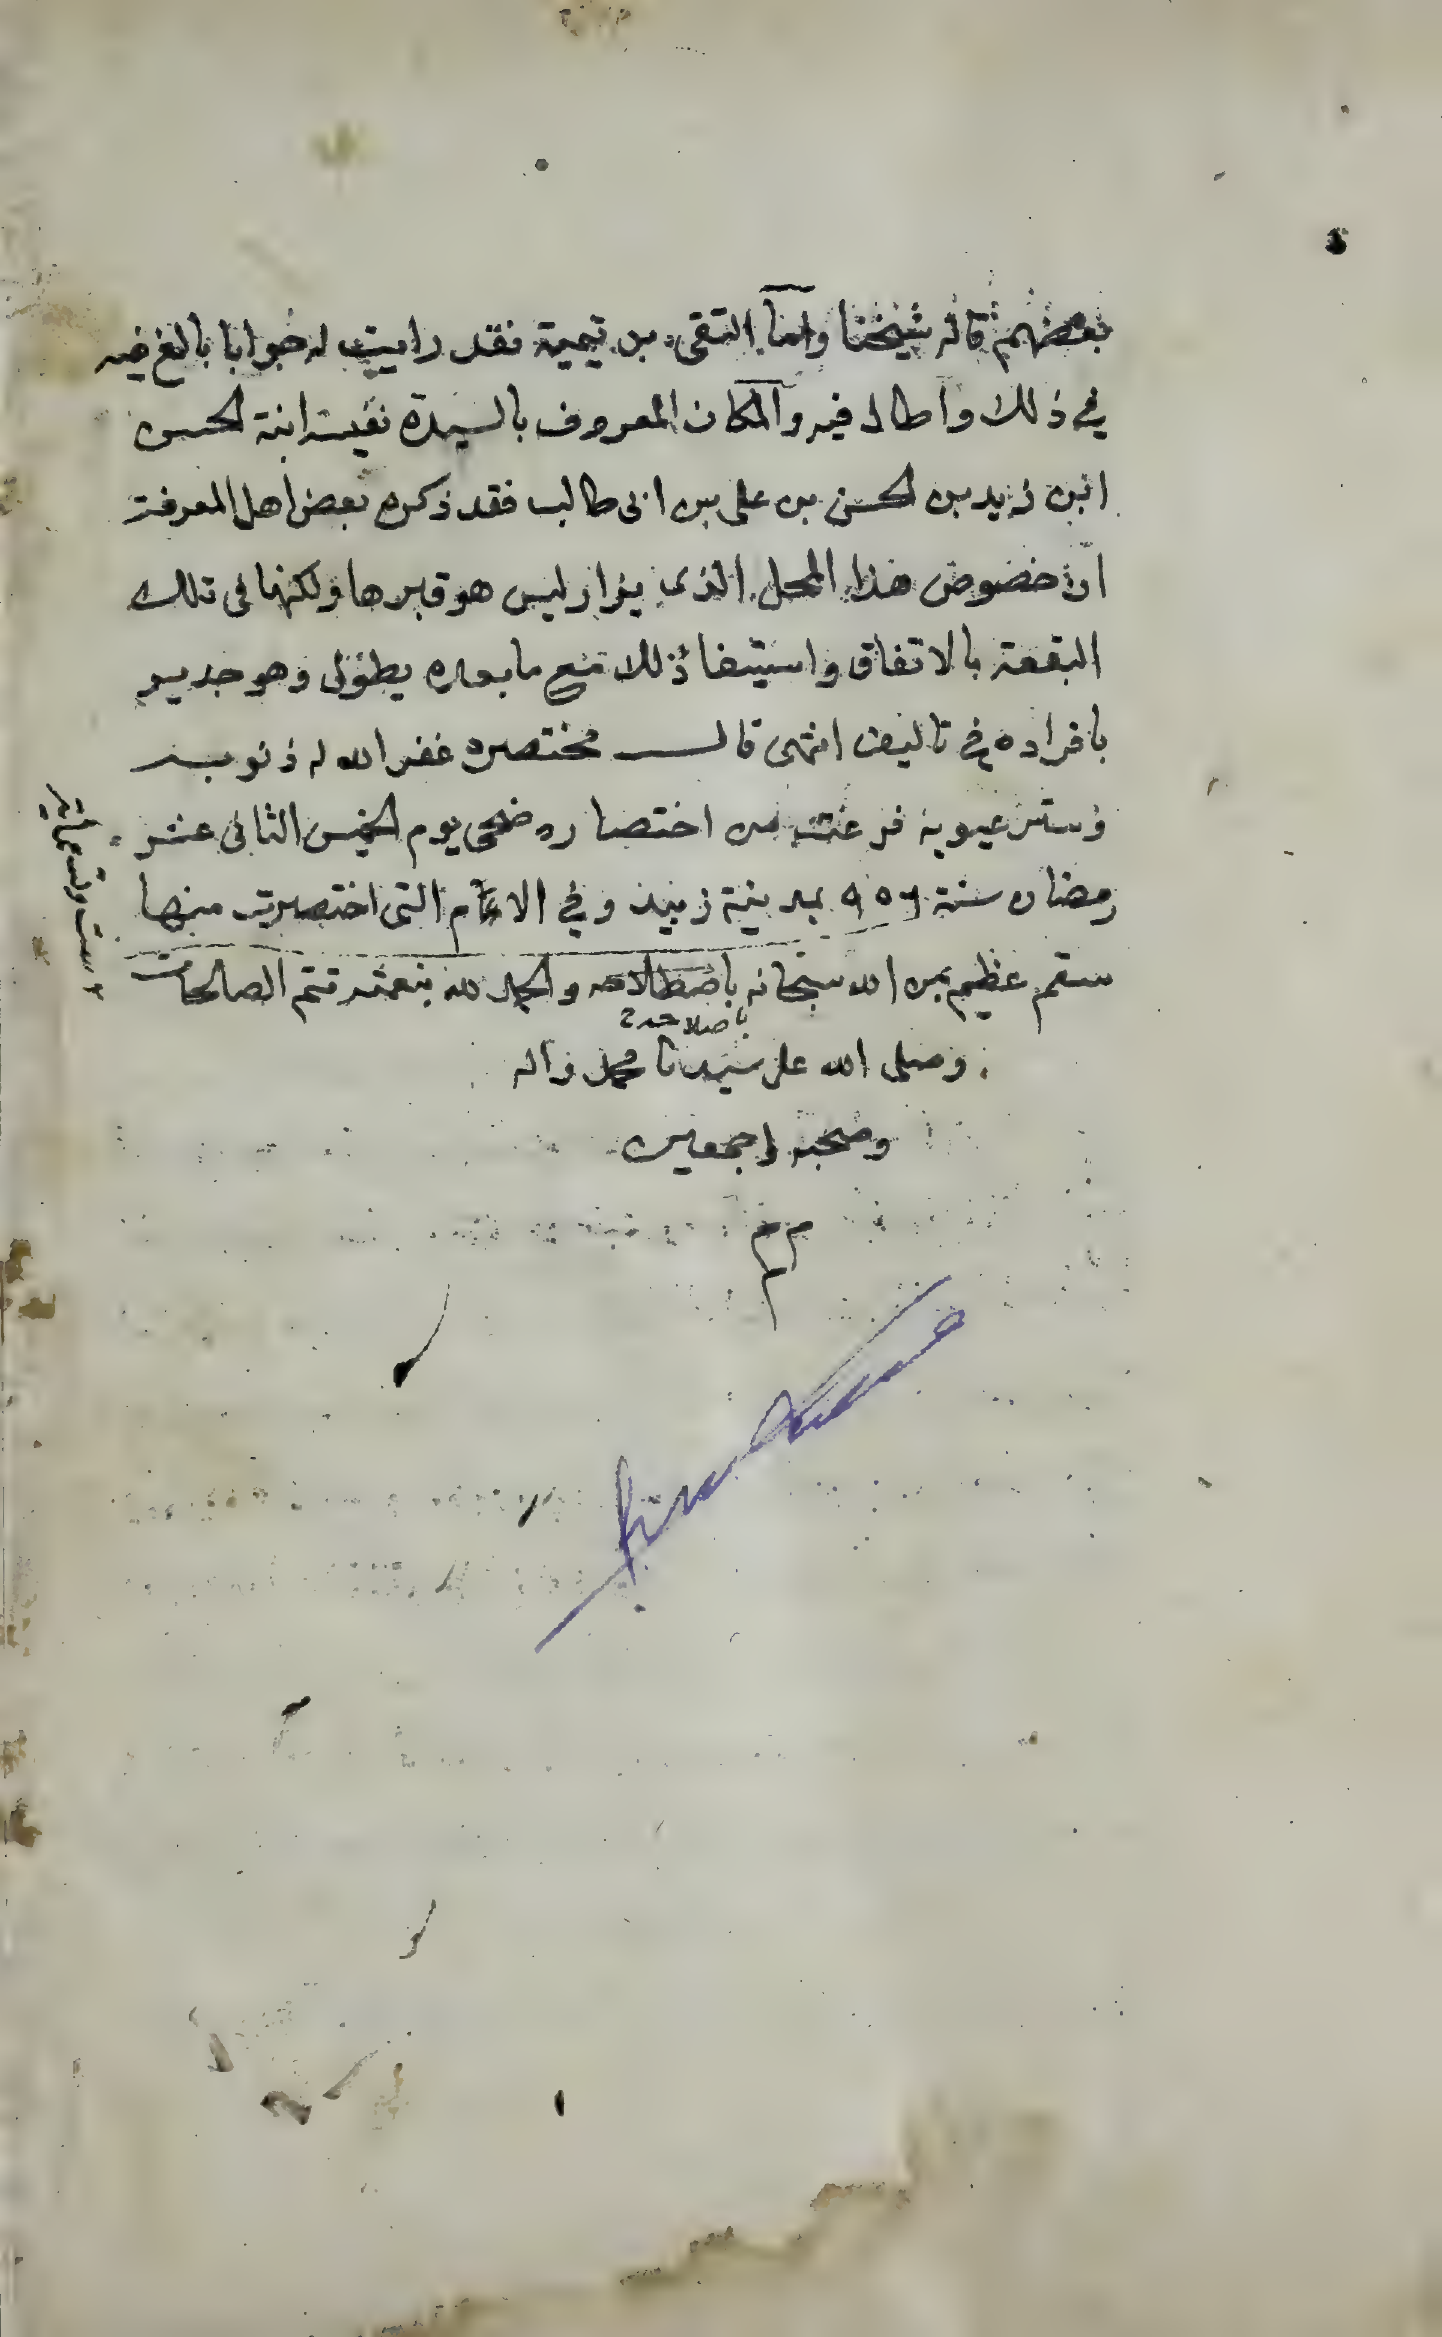 بعضهم قاله شيخنا واما التقى بن تيمية فقد رايت له جوابا بالغ فيه
في ذلك واطال فيه والمكان المعروف بالسيدة نفيسة ابنة الحسن
ابن زيد بن الحسن بن علي بن ابي طالب فقد ذكر بعض اهل المعرفة
ان خصوص هذا المحل الذي يزار ليس هو قبرها ولكنها في تلك
البقعة بالاتفاق واستيفا ذلك مع ما بعده يطول وهو جدير
بافراده في تاليف انتهى قال مختصره غفر الله له ذنوبه
وستر عيوبه فرغت من اختصاره ضحى يوم الخميس الثاني عشر
رمضان سنة ٩٥٦ بمدينة زبيد وفي الام التي اختصرت منها
سقم عظيم يمن الله سبحانه باصطلاحه والحمد لله بنعمته تتم الصالحات
باصلاحه
وصلى الله على سيدنا محمد واله
وصحبه اجمعين
م م م